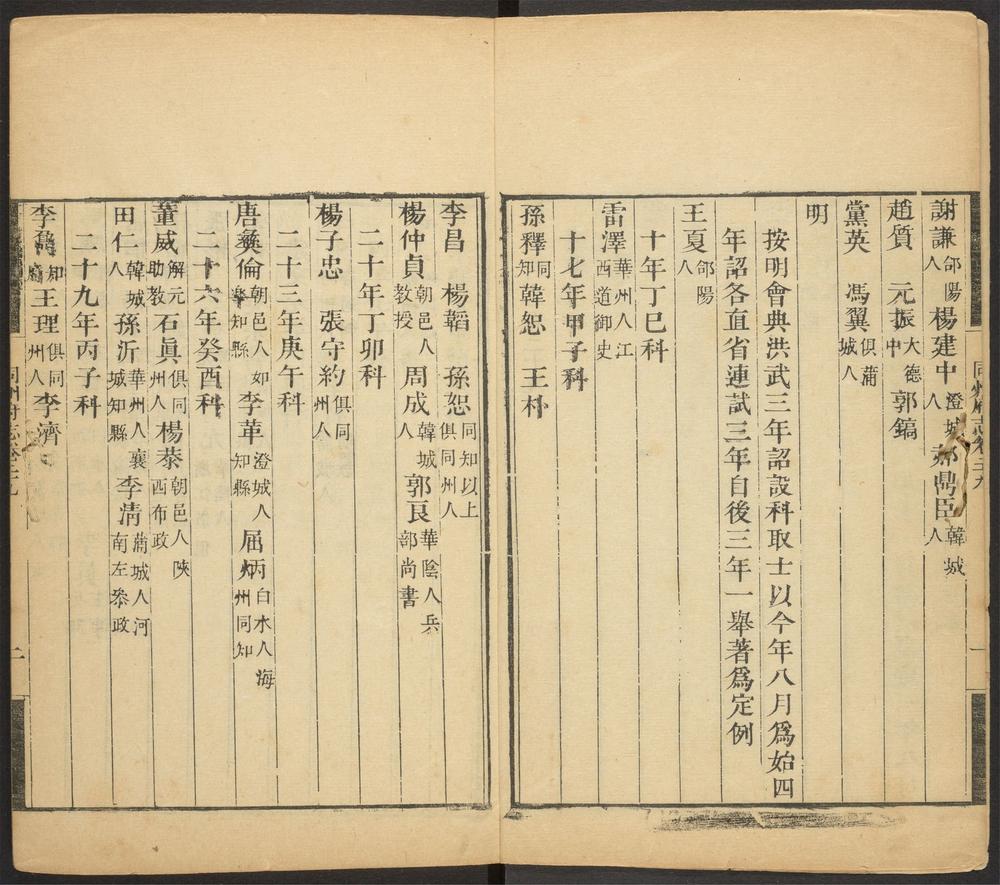 謝謙郃陽人 楊建中澄城人 郝鼎臣韓城人
趙質 元振大德中 郭鎬
黨英 馮翼俱蒲城人
明
按明會典洪武三年詔設科取士以今年八月爲始四
年詔各直省連試三年自後三年一舉著爲定例
王夏郃陽人
十年丁巳科
雷澤華州人江西道御史
十七年甲子科
孫釋同知 韓恕 王朴
李昌 楊韜 孫恕同知以上俱同州人
楊仲貞朝邑人教授 周成韓城人 郭良華陰人兵部尚書
二十年丁卯科
楊子忠 張守約俱同州人
二十三年庚午科
唐彝倫朝邑人如臯知縣 李華澄城人知縣 屈炳白水人海州同知
二十六年癸酉科
董威解元助教 石眞俱同州人 楊恭朝邑人陝西布政
田仁韓城人 孫沂華州人襄城知縣 李淸蒲城人河南左叅政
二十九年丙子科
李 知府 王理俱同州人 李濟
同州府志卷二十九
一
同州府志卷二十九
二